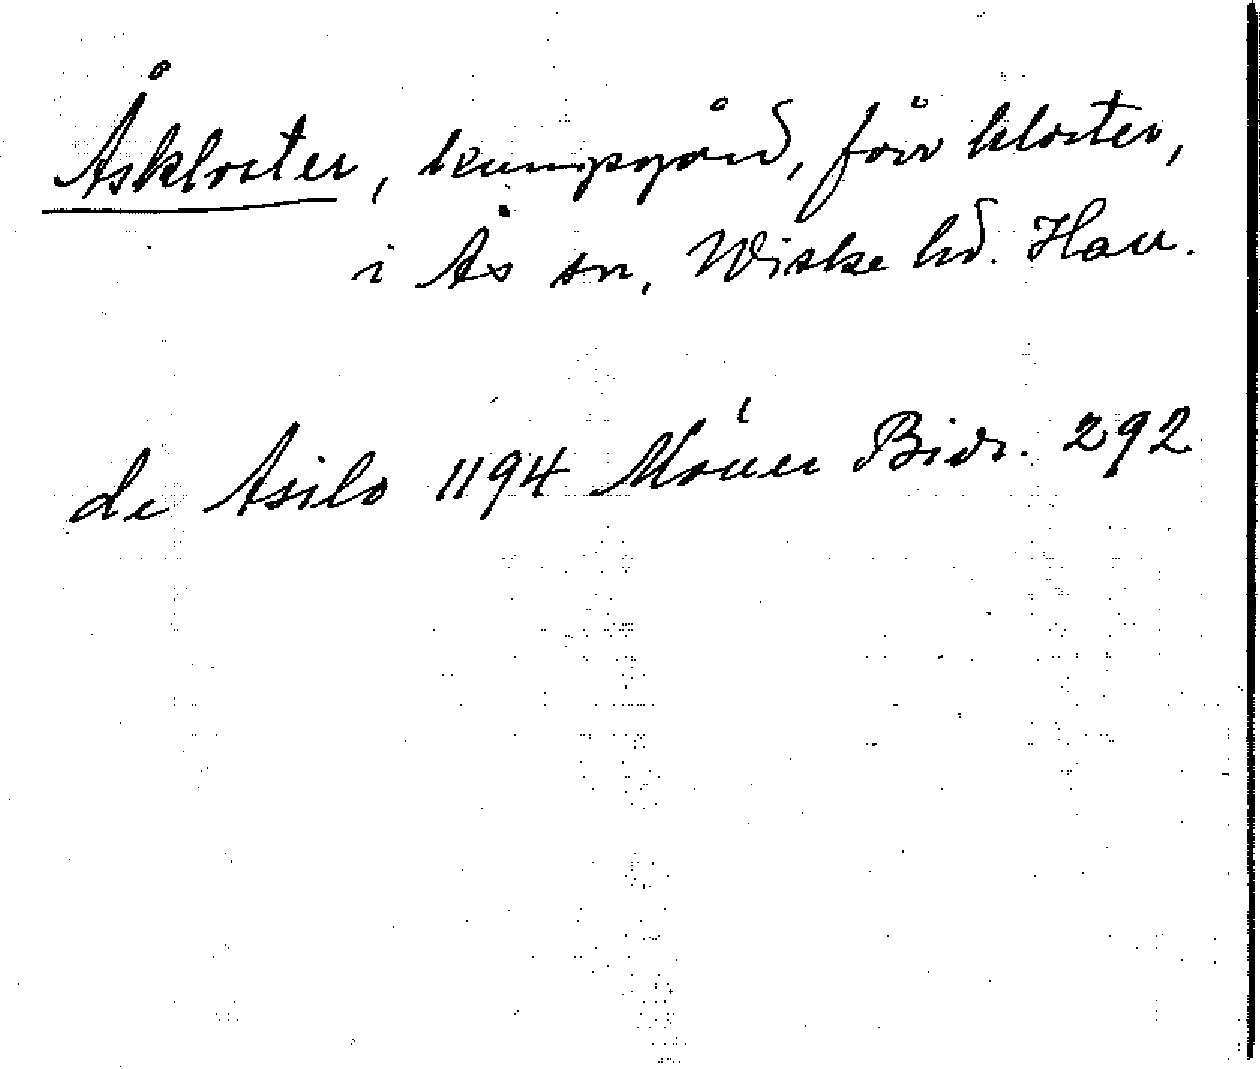 Åskloster, kungsgård, förr kloster,
i Ås sn, Wiske hd. Hall.
de Asilo 1194 Mörner Bidr. 292